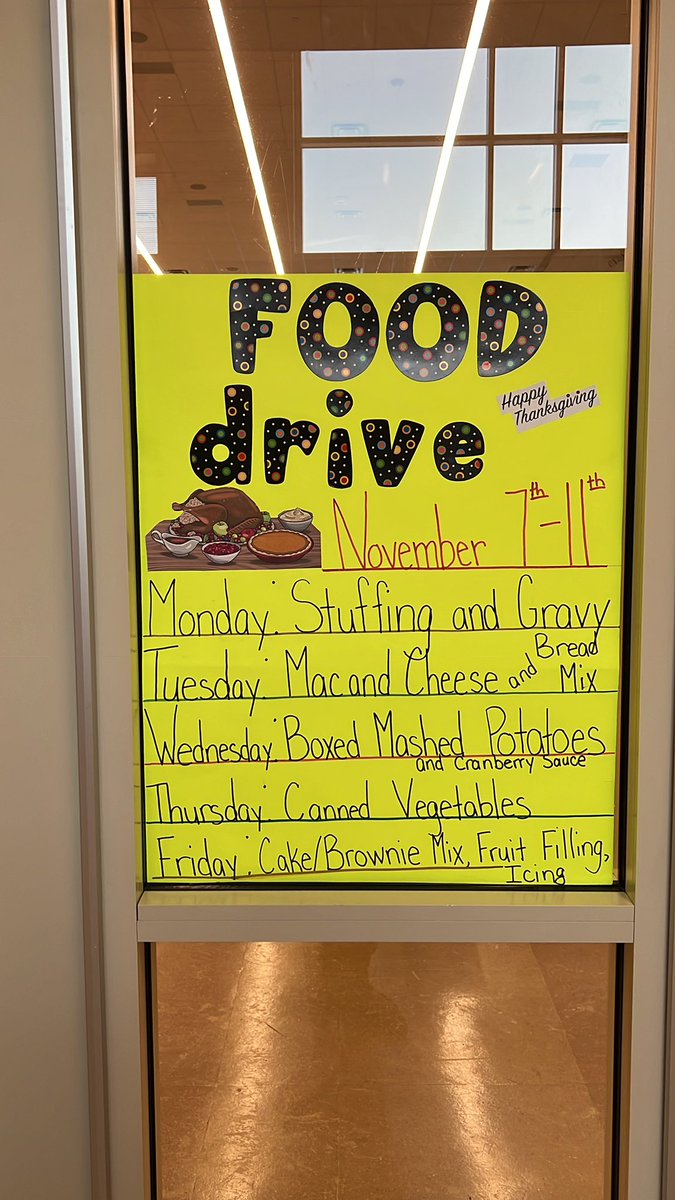 FOOD
drive
Happy
Thanksgiving
November 7th-11th
Monday: Stuffing and Gravy
Tuesday: Mac and Cheese and Bread
Mix
Wednesday: Boxed Mashed Potatoes
and Cranberry Sauce
Thursday: Canned Vegetables
Friday: Cake/Brownie Mix, Fruit Filling,
Icing